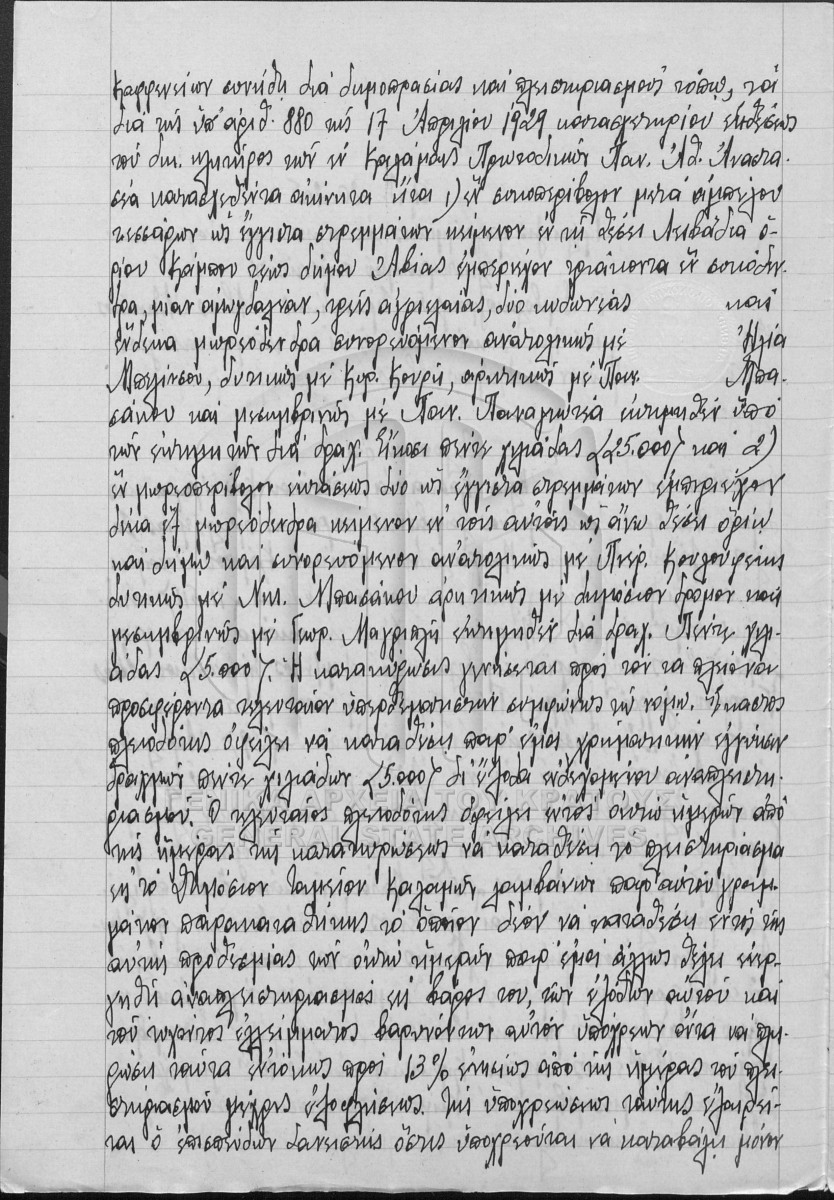 καφφενείων συνήθη διά δημοπρασίας καί πλειστηριασμούς τόπῳ, τά
διά τῆς ὑπ' ἀριθ. 880 τῆς 17 Ἀπριλίου 1929 κατασχετηρίου ἐκθέσεως
τοῦ δικ. κλητῆρος τῶν ἐν Καλάμαις Πρωτοδικῶν Παν. Ἀθ. Ἀναστα-
σέα κατασχεθέντα ἀκίνητα ἤτοι 1) ἕν συκοπερίβολον μετά ἀμπέλου
τεσσάρων ὡς ἔγγιστα στρεμμάτων κείμενον ἐν τῇ θέσει Λειβάδια ὁ-
ρίου Κάμπου τέως δήμου Ἀβίας ἐμπεριέχον τριάκοντα ἕν συκόδεν-
δρα, μίαν ἀμυγδαλέαν, τρεῖς ἀγριελαίας, δύο κυδωνέας καί
ἕνδεκα μωρεόδενδρα συνορευόμενον ἀνατολικῶς μέ Ἠλία
δυτικῶς μέ Κυρ. Κουρῆ, ἀρκτικῶς μέ Παν. Μπα-
σάκου καί μεσημβρινῶς μέ Παν. Παναγιωτέα ἐκτιμηθέν ὑπό
τῶν ἐκτιμητῶν διά δραχ. Εἴκοσι πέντε χιλιάδας (25.000) καί 2)
ἕν μωρεοπερίβολον ἐκτάσεως δύο ὡς ἔγγιστα στρεμμάτων ἐμπεριέχον
δέκα ἑπτά μωρεόδενδρα κείμενον ἐν τοῖς αὐτοῖς ὡς ἄνω θέσει ὁρίῳ
καί δήμῳ καί συνορευόμενον ἀνατολικῶς μέ Πιέρ.
δυτικῶς μέ Νικ. Μπασάκου ἀρκτικῶς μέ δημόσιον δρόμον καί
μεσημβρινῶς μέ Γεωρ. ἐκτιμηθέν διά δραχ. Πέντε χιλι-
άδας (5.000). Ἡ κατακύρωσις γενήσεται πρός τόν τά πλείονα
προσφέροντα τελευταῖον ὑπερθεματιστήν συμφώνως τῷ νόμῳ. Ἕκαστος
πλειοδότης ὀφείλει νά καταθέσῃ παρ' ἐμοί χρηματικήν ἐγγύησιν
δραχμῶν πέντε χιλιάδων (5.000) δι' ἔξοδα ἐνδεχομένου ἀναπλειστη-
ριασμοῦ. Ὁ τελευταῖος πλειοδότης ὀφείλει ἐντός ὀκτώ ἡμερῶν ἀπό
τῆς ἡμέρας τῆς κατακυρώσεως νά καταθέσῃ τό πλειστηρίασμα
εἰς τό Δημόσιον Ταμεῖον Καλαμῶν λαμβάνων παρ' αὐτοῦ γραμ-
μάτιον παρακαταθήκης τό ὁποῖον δέον νά καταθέσῃ ἐντός τῆς
αὐτῆς προθεσμίας τῶν ὀκτώ ἡμερῶν παρ' ἐμοί ἄλλως θέλει ἐνερ-
γηθῆ ἀναπλειστηριασμός εἰς βάρος του, τῶν ἐξόδων αὐτοῦ καί
τοῦ τυχόντος ἐλλείμματος βαρυνόντων αὐτόν ὑπόχρεων ὄντα νά πλη-
ρώσῃ ταῦτα ἐντόκως πρός 13% ἐτησίως ἀπό τῆς ἡμέρας τοῦ πλει-
στηριασμοῦ μέχρις ἐξοφλήσεως. Τῆς ὑποχρεώσεως ταύτης ἐξαιρεῖ-
ται ὁ ἐπισπεύδων δανειστής ὅστις ὑποχρεοῦται νά καταβάλῃ μόνον
ΓΕΝΙΚΑ ΑΡΧΕΙΑ ΤΟΥ ΚΡΑΤΟΥΣ
GENERAL STATE ARCHIVES